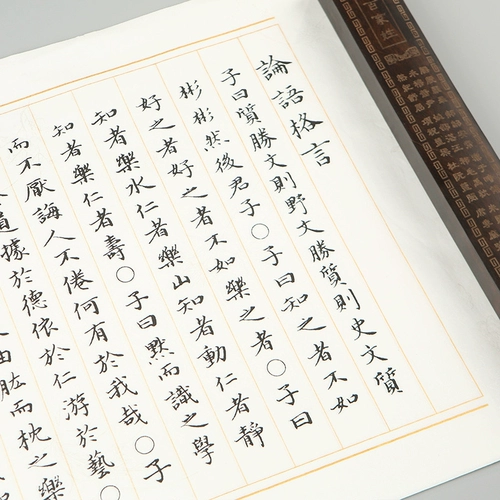 論語格言
子曰質勝文則野文勝質則史文質
彬彬然後君子○子曰知之者不如
好之者好之者不如樂之者○子曰
知者樂水仁者樂山知者動仁者靜
知者樂仁者壽○子曰默而識之學
而不厭誨人不倦何有於我哉○子
道據於德依於仁游於藝○
曲肱而枕之樂
百家姓